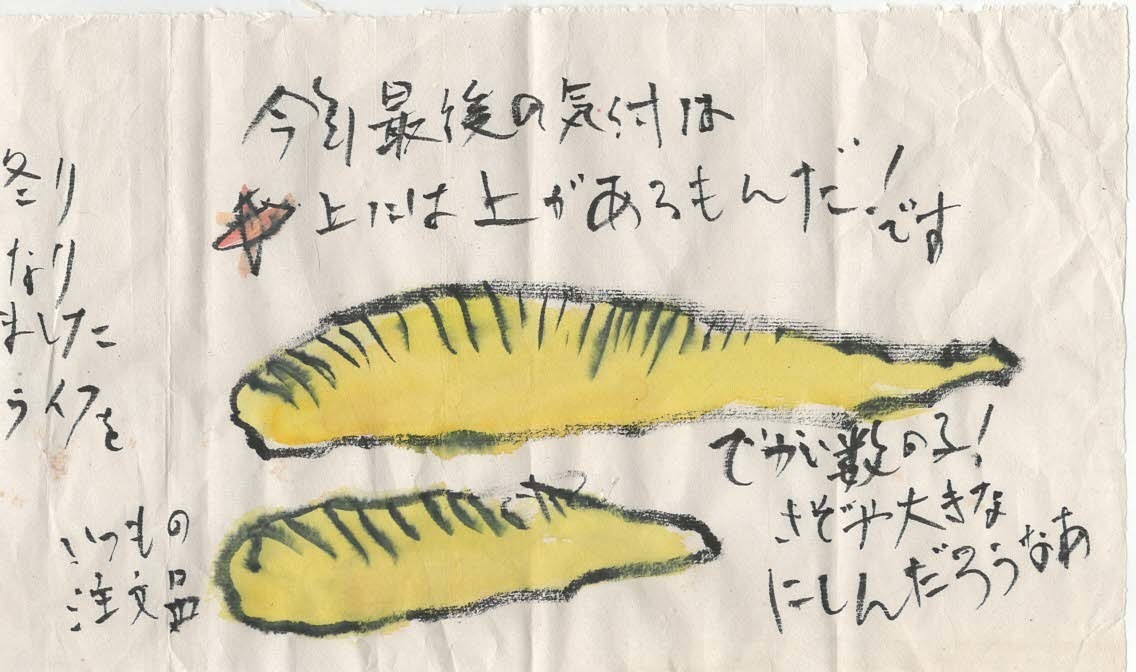 なり
ました
ライフを
最後の気付は
上には上があるもんだ!です
でかい数の子!
さぞや大きな
にしんだろうなあ
いつもの
注文品